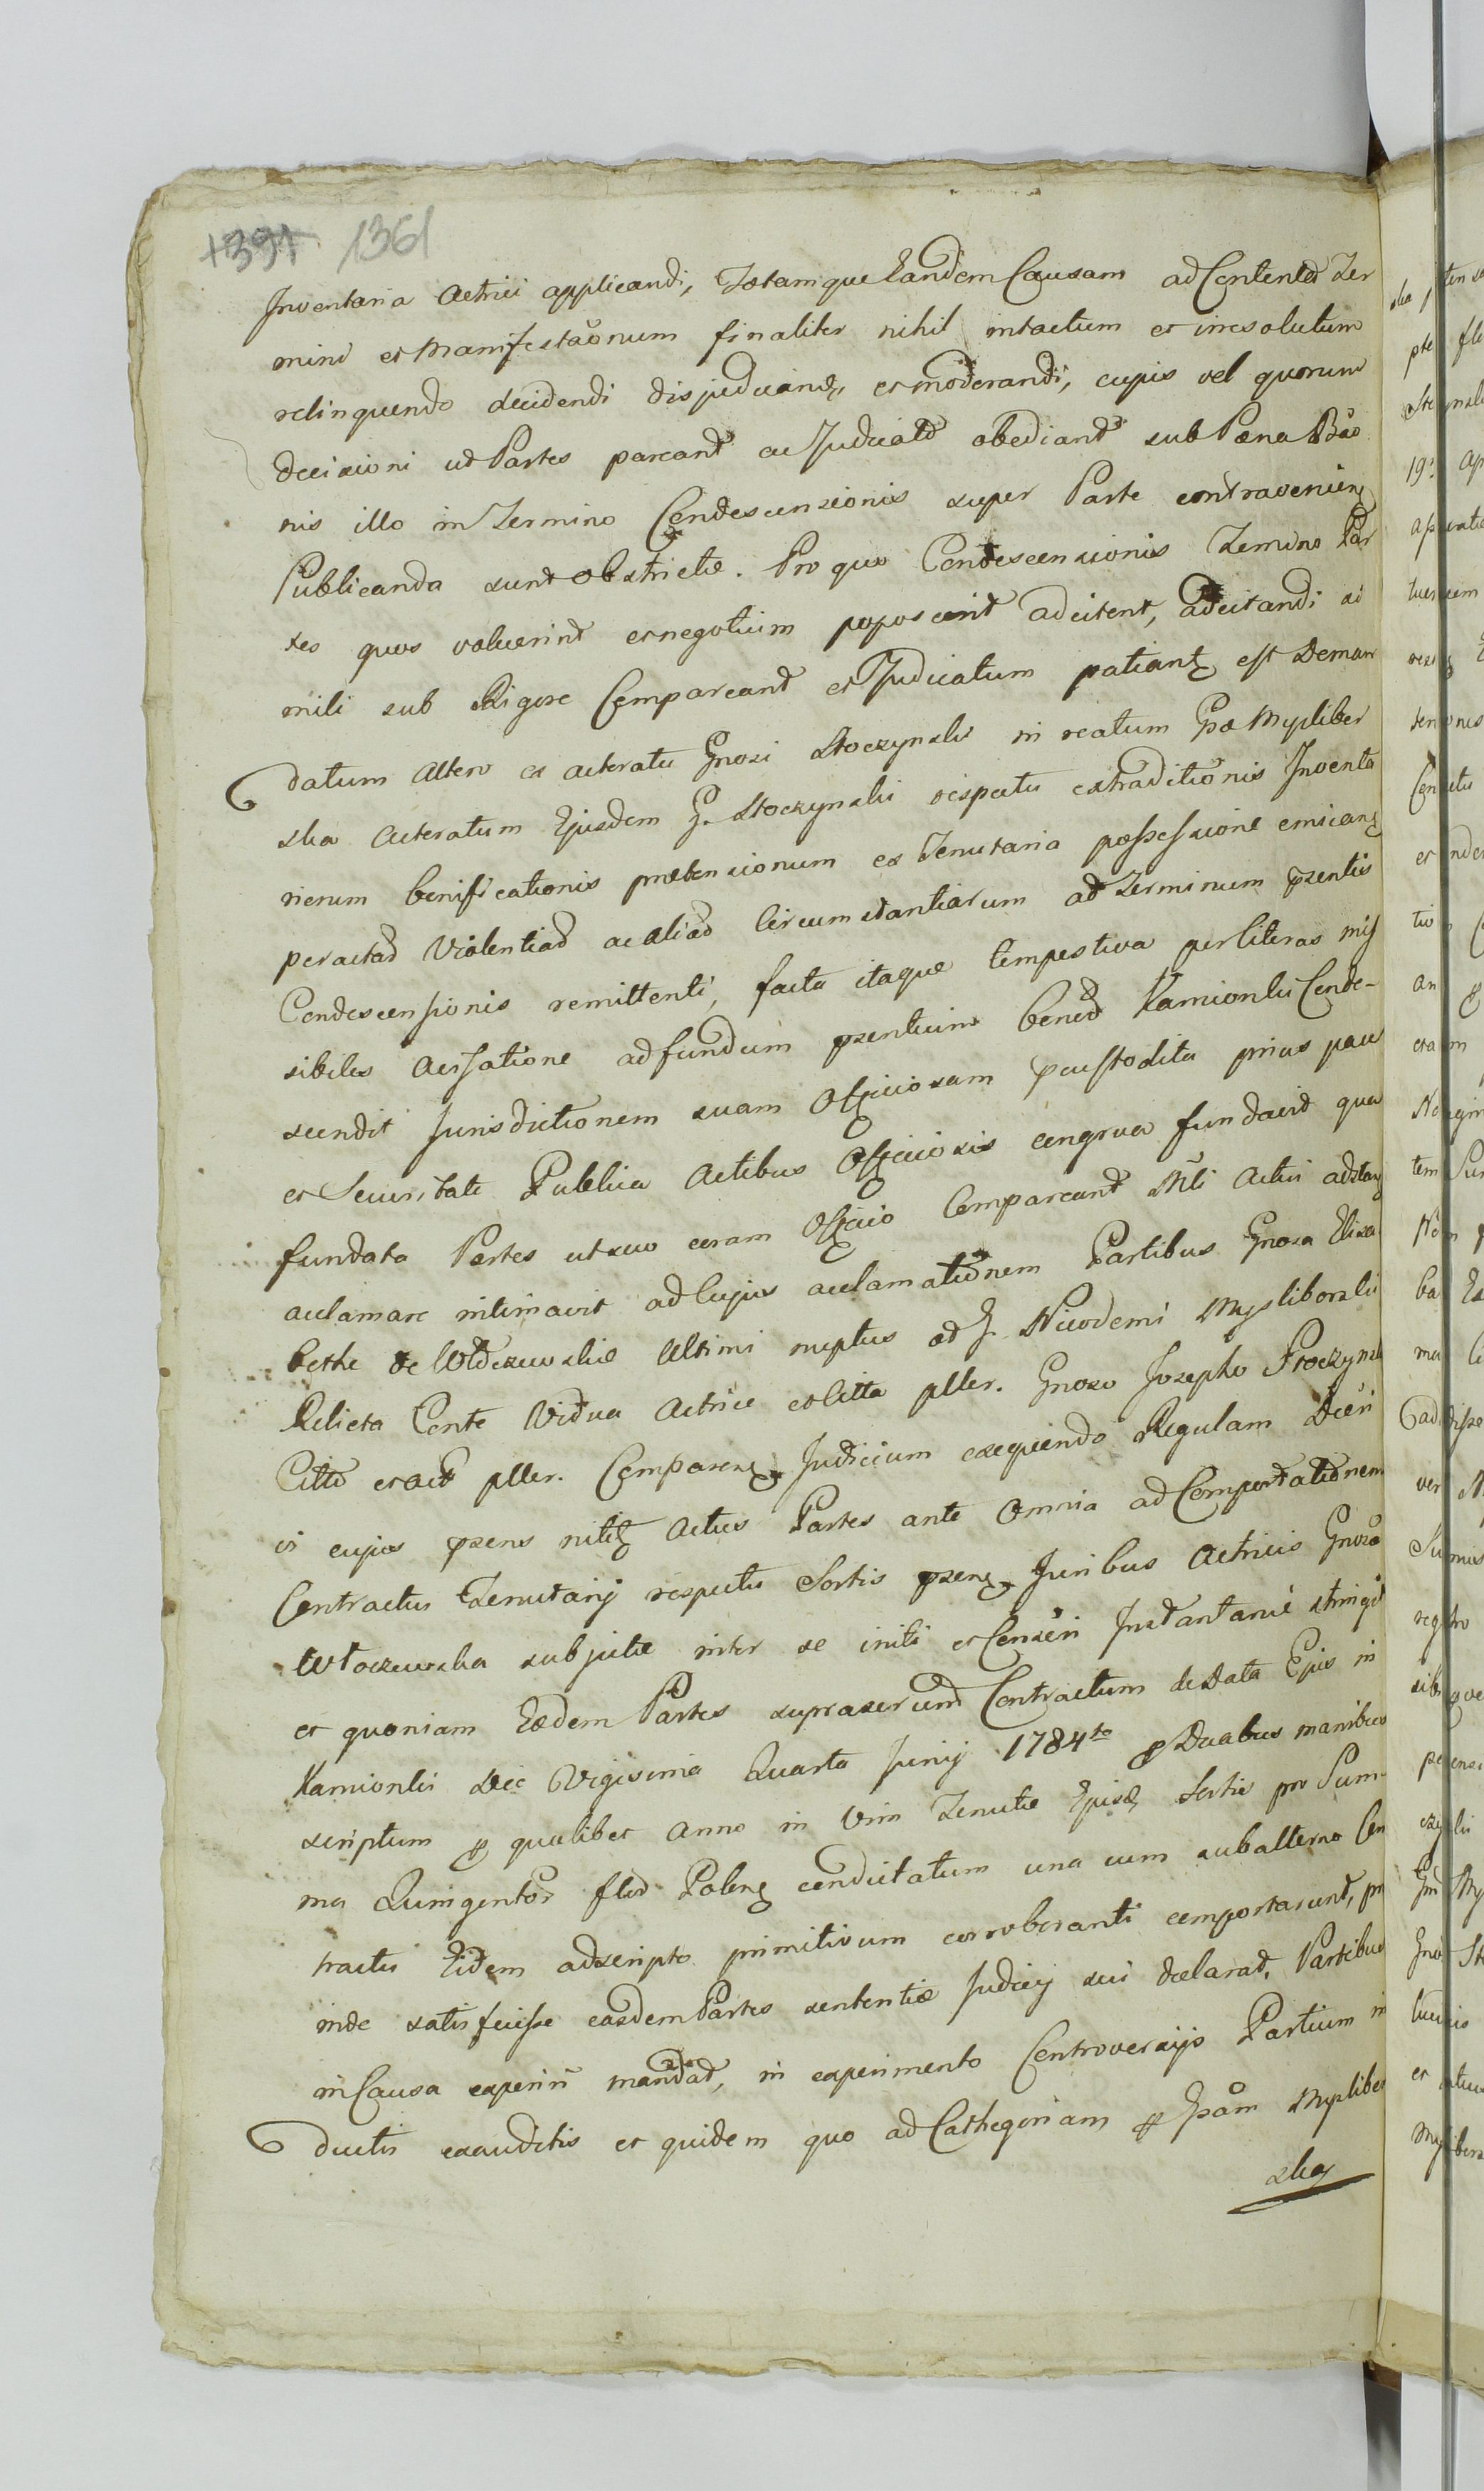 1391 1361
Inventaria Actrici applicandi, Totamque Eandem Causam ad Contenta Ter
mini et Manifestaõnum finaliter nihil intactum et irresolutum
relinquendo decidendi disjudicand, et moderandi, cujus vel quorum
decisioni ut Partes pareant ac Judicato obediant sub Pæna Bãõ
nis illo in Termino Condescensionis super Parte contravenien
Publicanda sunt obstrictæ. Pro quo Condescensionis Termino Par
tes quos voluerint et negotium poposcerit adcitent, adcitandi si
mili sub Rigore Compareant et Judicatum patiant est Deman
datum Altero ex acteratu Gnosi Stoczynski in reatum Gsæ Myslibor
ska Acteratum Ejusdem G. Stoczynski respectu extraditionis Inventa
riorum bonificationis prætensionum ex Tenutaria possessione emican
peractar Violentiar ac aliar Circumstantiarum ad Terminum pzentis
Condescensionis remittenti, facta itaque tempestiva per literas mis
sibiles Aersatione ad fundum pzentium bonor Kamionki Conde-
scendit Jurisdictionem suam Officiosam pcustodita prius pace
et Securitate Publica Actibus Officiosis congrua fundavit qua
fundata Partes ut suo coram Officio Compareant Mli Actui adstan
acclamare intimavit ad Cujus acclamationem Partibus Gnosa Elisa
betha de Włoczewskie Ultimi nuptus ad G. Nicodemi Mysliborski
Relicta Conte Vidua Actrice et Citta pller. Gnoso Josepho Stoczynsk
Citto et act pller. Comparen Judicium exequendo Regulam Dćri
vi cujus pzens nitit Actus Partes ante Omnia ad Comportationem
Contractus Tenutarij respectu Sortis pzen Juribus Actricis Gnosæ
Włoczewska subjectæ inter se initi et Censeri Instantanie stringit
et quoniam Eædem Partes suprascrum Contractum de Data Ejus in
Kamionki Die Vigesima Quarta Junij 1784to p Duabus manibus
scriptum p quolibet Anno in Vim Tenutæ Ejusd Sortis pro Sum-
ma Quingentor flor Polon condictatum una cum subalterno Con
tractu Eidem adscripto primitivum corroboranti comportarunt, pro
inde satisfecisse easdem Partes sententiæ Judicij sui declarat, Partibus
in Causa experiri mandat, in experimento Controversijs Partium in
ductis exauditis et quidem quo ad Cathegoriam p Gsam Myslibor
ska